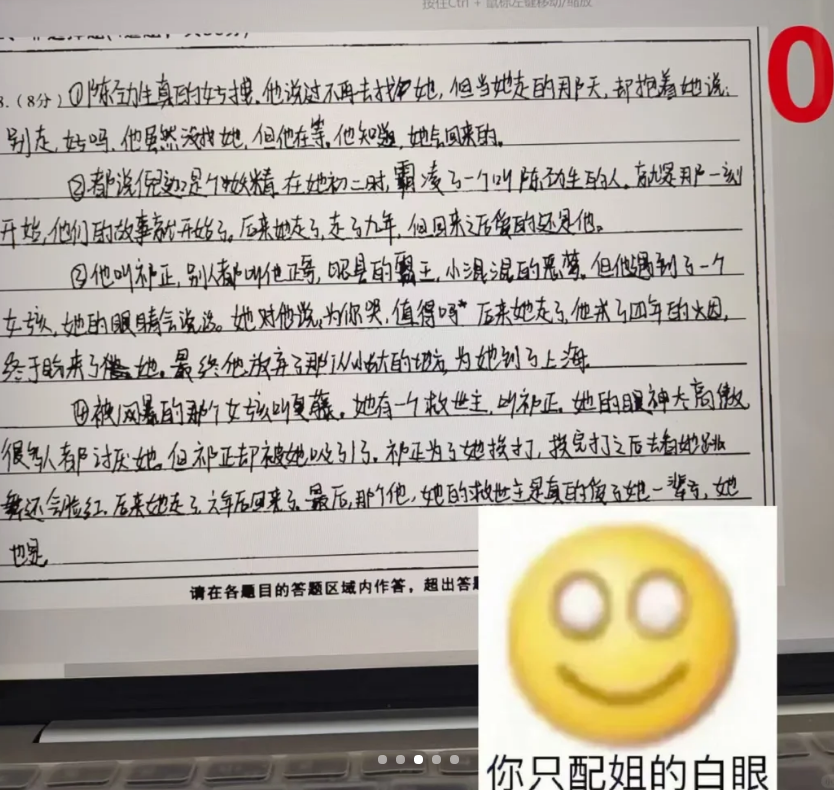 按住Ctrl + 鼠标左键移动/缩放
0
8.（8分）①陈劲生真的好拽，他说过不再去找她，但当她走的那天，却抱着她说：
别走，好吗，他虽然没找她，但他在等。他知道，她会回来的。
②都说倪迦是个妖精，在她初二时，霸凌了一个叫陈劲生的人。就是那一刻
开始，他们的故事就开始了。后来她走了，走了九年，但回来之后爱的还是他。
③他叫祁正，别人都叫他正哥，呢县的霸王，小混混的恶梦。但他遇到了一个
女孩，她的眼睛会说话。她对他说，为你哭，值得吗" 后来她走了，他求了四年的大因，
终于盼来了她。最终他放弃了那从小长大的地方，为她到了上海。
④被网暴的那个女孩叫夏藤。她有一个救世主，叫祁正。她的眼神太高傲
很多人都讨厌她，但祁正却被她吸引了。祁正为了她挨打，挨完打之后去看她跳
舞还会脸红，后来她走了，六年后回来了。最后，那个他，她的救世主是真的爱了她一辈子，她
也是
请在各题目的答题区域内作答，超出答题
你只配姐的白眼